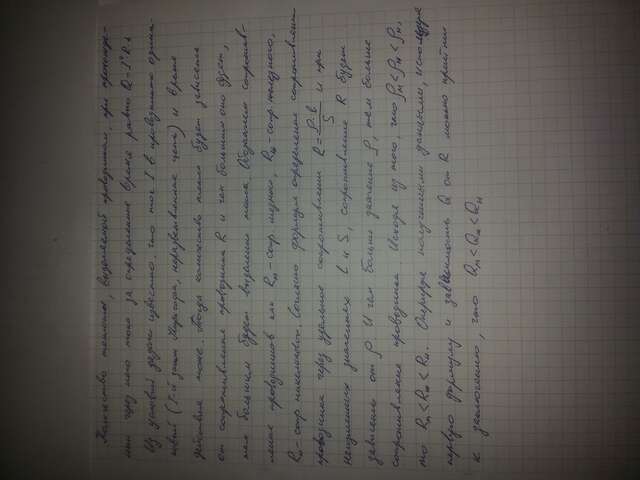 Количество теплоты, выделяемой проводником, при прохожде-
нии через него тока за определенное время равно Q=I²Rt
Из условий задачи известно, что ток I в проводниках одина-
ковый (1-й закон Кирхгофа, неразветвленная цепь) и время
действия тоже. Тогда количество тепла будет зависеть
от сопротивления проводника R и чем большим оно будет,
тем большим будет выделение тепла. Обозначим сопротив-
ление проводников как Rм-сопр. медного, Rж-сопр. железного,
Rн-сопр. никелинового. Согласно формуле определения сопротивления
проводника через удельное сопротивление R=ρ·l/S и при
неизменных значениях l и S, сопротивление R будет
зависеть от ρ. И чем больше значение ρ, тем больше
сопротивление проводника. Исходя из того, что ρм<ρж<ρн,
то Rм<Rж<Rн. Оперируя полученными данными, используя
первую формулу и зависимость Q от R можно прийти
к заключению, что Qм<Qж<Qн